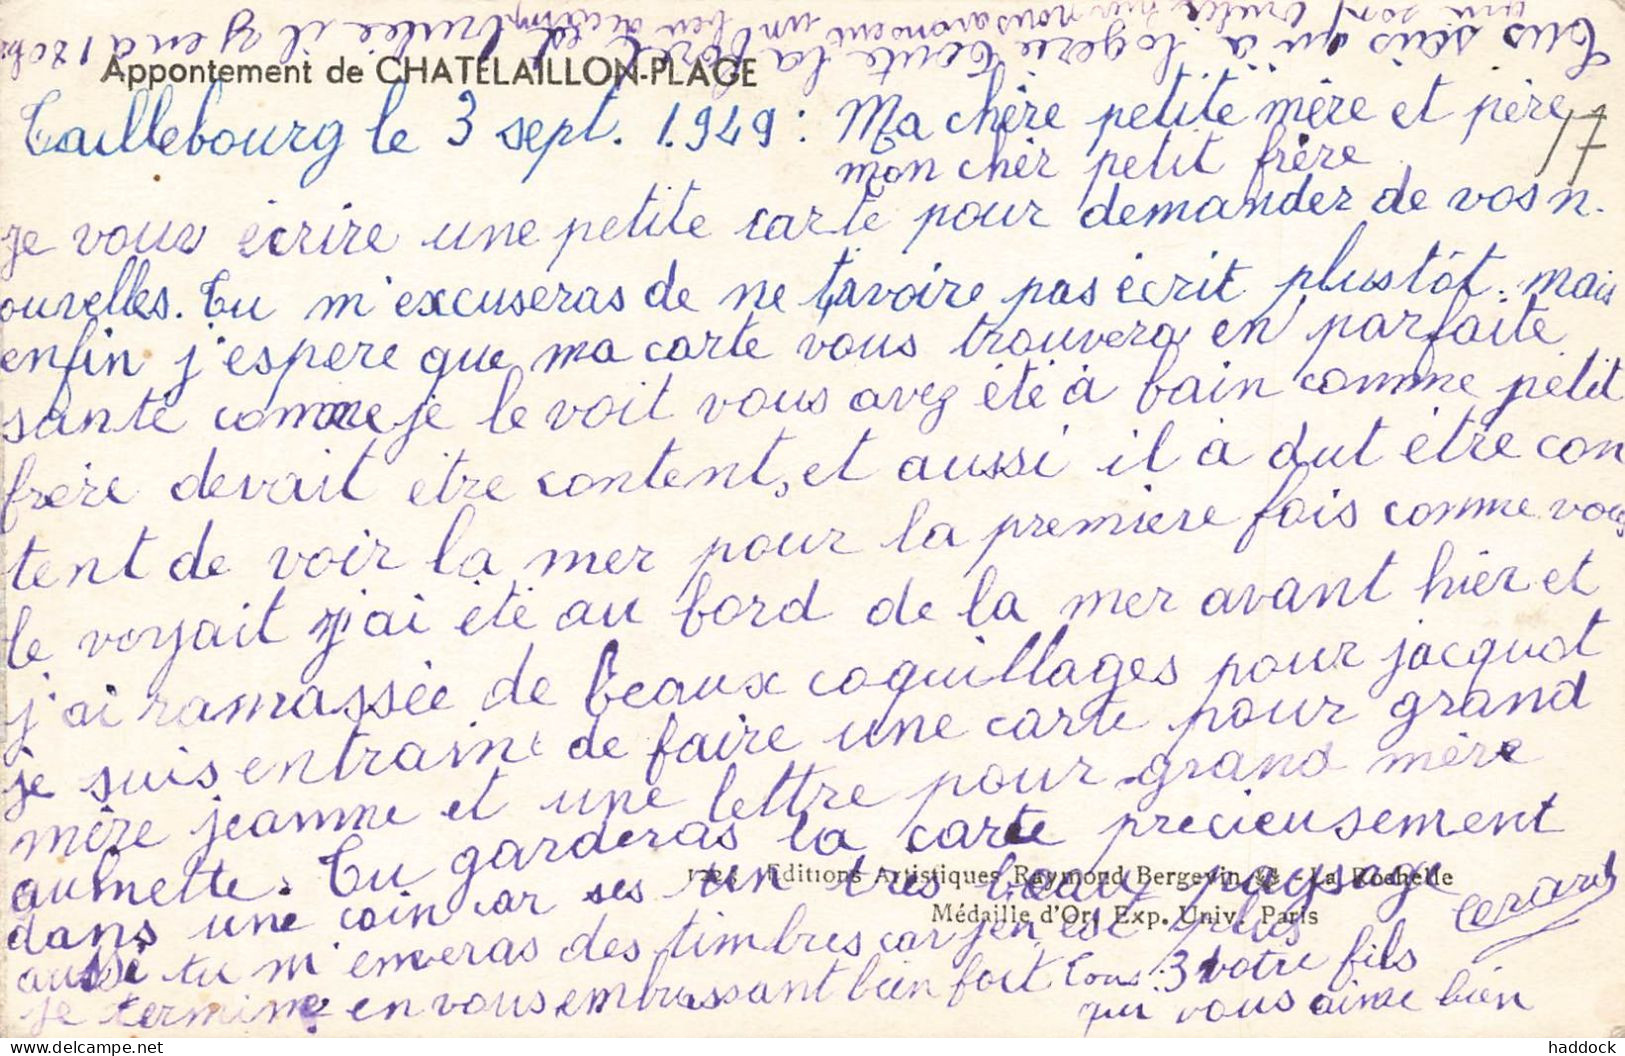 Appontement de CHATELAILLON-PLAGE
Taillebourg le 3 sept. 1.949: Ma chère petite mère et père
17
mon chèr petit frère
je vous écrire une petite carte pour demander de vos n.
ouvelles. Tu m'excuseras de ne t'avoire pas écrit plustôt. mais
enfin j'espere que ma carte vous trouvera en parfaite
santé comme je le voit vous avez été à bain comme petit
frère devait être content, et aussi il à dut être con
tent de voir la mer pour la premiere fois comme vous
le voyait j'ai été au bord de la mer avant hièr et
j'ai ramassée de beaux coquillages pour jacquot
je suis entrain de faire une carte pour grand
mère jeanne et une lettre pour grand mère
aumette. Tu garderas la carte precieusement
dans une coin car ses un tres beau paysage
Editions Artistiques Raymond Bergevin - La Rochelle
Médaille d'Or, Exp. Univ. Paris
aussi tu m'enveras des timbres car j'en est plus
je termine en vous embrassant bien fort tous 3 votre fils
qui vous aime bien
Tus sais qu'à logerie toute la foret est brulée il y en a
haddock